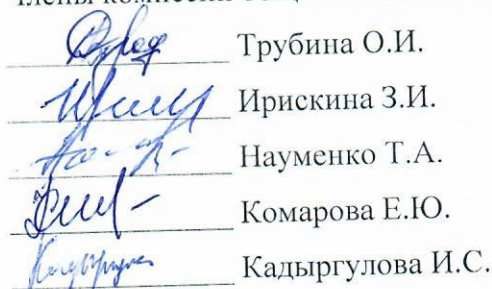 Члены комиссии
Трубина О.И.
Ирискина З.И.
Науменко Т.А.
Комарова Е.Ю.
Кадыргулова И.С.